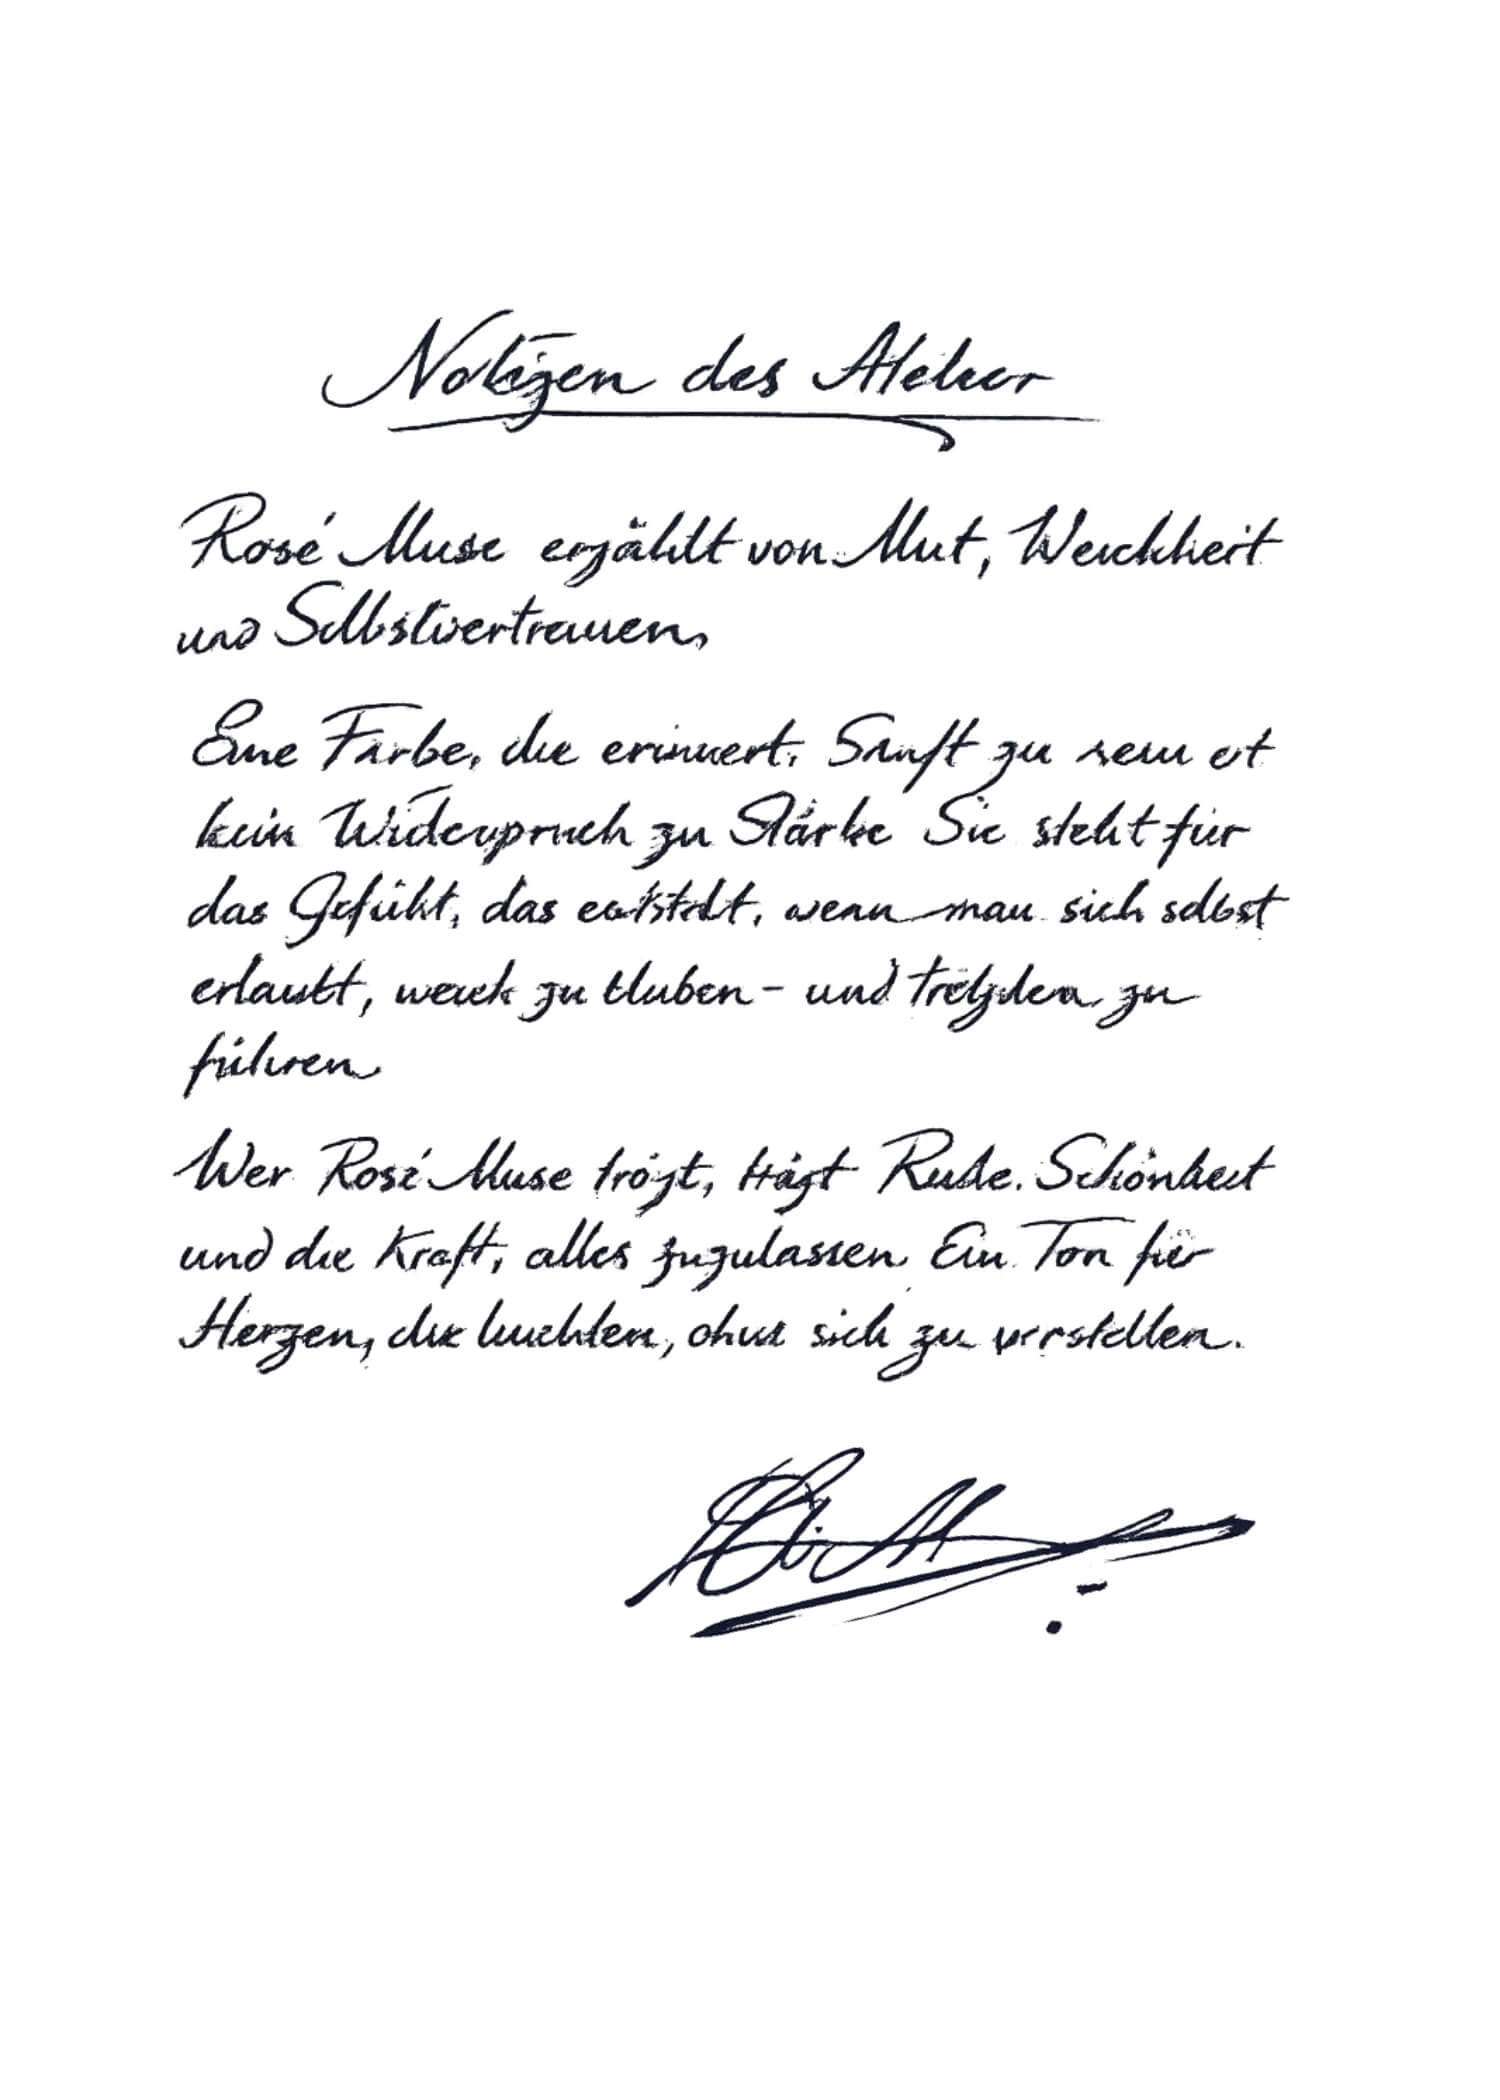 Notizen des Atelier
Rosé Muse erzählt von Mut, Weichheit
und Selbstvertrauen,
Eine Farbe, die erinnert. Sanft zu sein ist
kein Widerspruch zu Stärke Sie steht für
das Gefühl, das entsteht, wenn man sich selbst
erlaubt, weich zu bleiben - und trotzdem zu
führen
Wer Rosé Muse trägt, trägt Ruhe. Schönheit
und die Kraft, alles zuzulassen Ein Ton für
Herzen, die leuchten, ohne sich zu verstellen.